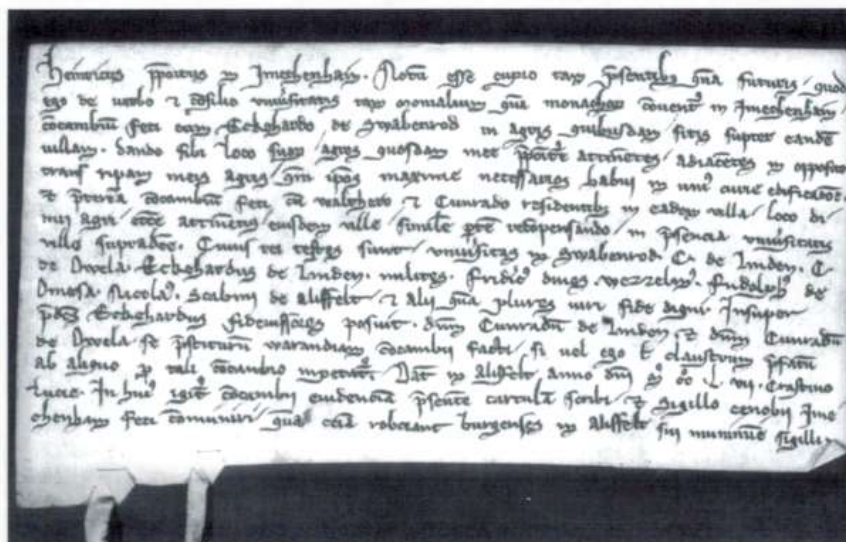 Heinricus ppositus in Jmechenhain. Notū esse cupio tam psentibus quā futuris quod
ego de verbo et ɔsilio vniūsitatis tam monialium quā monachor ɔuent in Jmechenhain
ɔcambiū feci cum Eckehardo de Swabenrod in agris quibusdam sitis supter eandē
villam. dando sibi loco suor agros quosdam mee ppositure attinētes adiacētes in opposito
trans ripam meis agris qm ipos maxime necessarios habui in vni curie edificatōe.
et ptereā ɔcambiū feci cū walthero et Cunrado residentibus in eadem villa loco
agri attinentis eiusdem ville simile recōpensando in psencia vniūsitatis
ville supradce. Cuius rei testes sunt vniūsitas in Swabenrod. C. de Linden. C.
de Owela. Eckehardus de Linden. milites. Fridic dings. wezzelin. Rudolph de
Omesa. Nicola. Scabini de alisfelt et alij quā plures viri fide digni. Insuper
pdcs Eckehardus fideiussores posuit. dnm Cunradū de Linden et dnm Cunradū
de Owela se pstiturū warandiam ɔcambii facti si vel ego vel claustrum pfatū
ab aliquo p tali ɔcambio inpetat. Dat in alisfelt anno dni m cc L. vii. Crastino
Lucie. In hui igit ɔcambii euidenciā psente cartulā scribi et sigillo cenobii Jme
chenham feci ɔmuniri quā eciā roborant burgenses in alisfelt sui munimine sigilli